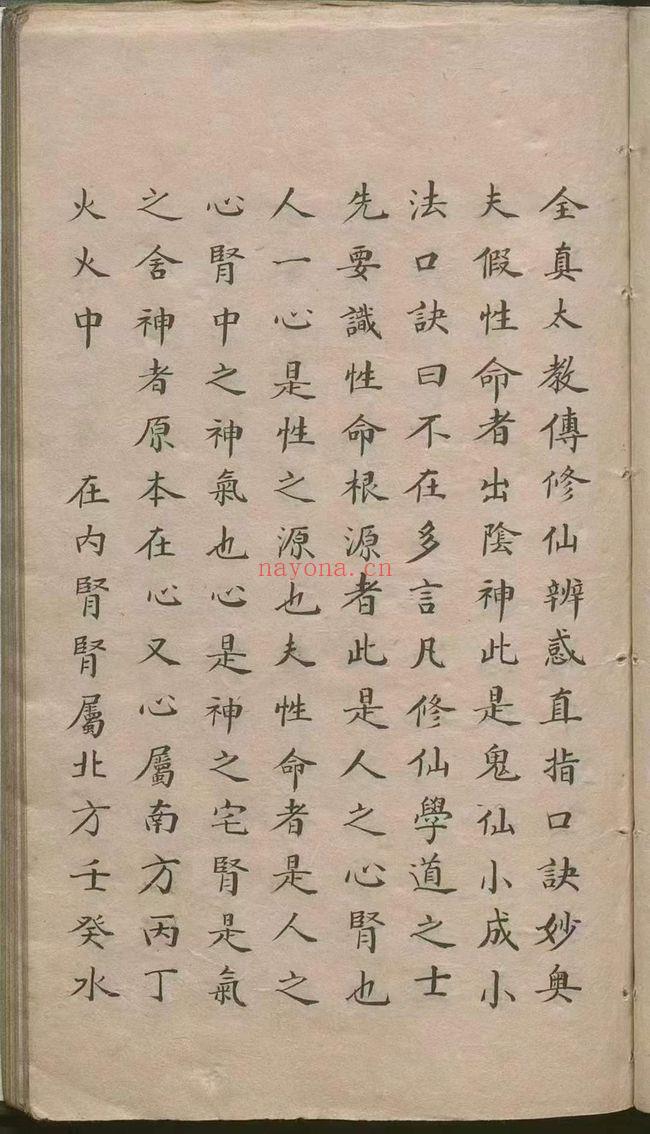 全真太教傳修仙辨惑直指口訣妙奥
夫假性命者出陰神此是鬼仙小成小
法口訣曰不在多言凡修仙學道之士
先要識性命根源者此是人之心腎也
人一心是性之源也夫性命者是人之
心腎中之神氣也心是神之宅腎是氣
之舍神者原本在心又心屬南方丙丁
火火中　在内腎腎屬北方壬癸水
nayona.cn